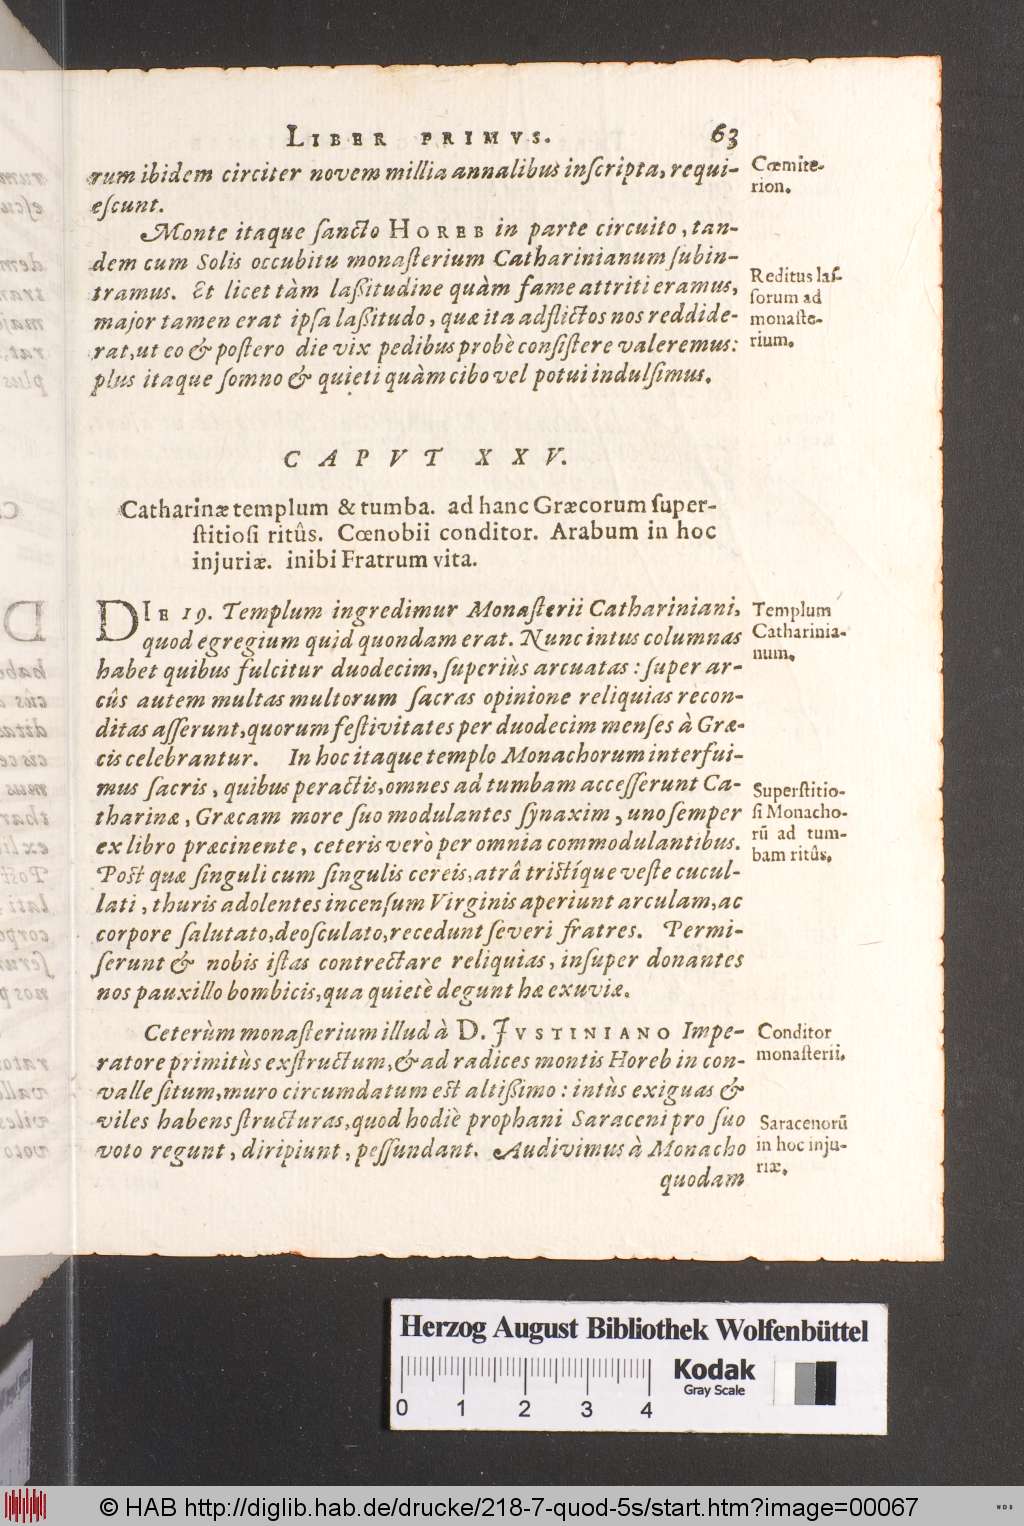 LIBER PRIMVS. 63
rum ibidem circiter novem millia annalibus inſcripta, requi-
eſcunt.
Cœmite-
rion.
Monte itaque ſancto HOREB in parte circuito, tan-
dem cum Solis occubitu monaſterium Catharinianum ſubin-
tramus. Et licet tàm laßitudine quàm fame attriti eramus,
major tamen erat ipſa laßitudo, quæ ita adflictos nos reddide-
rat, ut eo & poſtero die vix pedibus probè conſiſtere valeremus:
plus itaque ſomno & quieti quàm cibo vel potui indulſimus.
Reditus laſ-
ſorum ad
monaſte-
rium.
CAPVT XXV.
Catharinæ templum & tumba. ad hanc Græcorum ſuper-
ſtitioſi ritûs. Cœnobii conditor. Arabum in hoc
injuriæ. inibi Fratrum vita.
DIE 19. Templum ingredimur Monaſterii Cathariniani,
quod egregium quid quondam erat. Nunc intus columnas
habet quibus fulcitur duodecim, ſuperiùs arcuatas: ſuper ar-
cûs autem multas multorum ſacras opinione reliquias recon-
ditas aſſerunt, quorum feſtivitates per duodecim menſes à Græ-
cis celebrantur. In hoc itaque templo Monachorum interfui-
mus ſacris, quibus peractis, omnes ad tumbam acceſſerunt Ca-
tharinæ, Græcam more ſuo modulantes ſynaxim, uno ſemper
ex libro præcinente, ceteris verò per omnia commodulantibus.
Poſt quæ ſinguli cum ſingulis cereis, atrâ triſtíque veſte cucul-
lati, thuris adolentes incenſum Virginis aperiunt arculam, ac
corpore ſalutato, deoſculato, recedunt ſeveri fratres. Permi-
ſerunt & nobis iſtas contrectare reliquias, inſuper donantes
nos pauxillo bombicis, qua quietè degunt hæ exuviæ.
Templum
Catharinia-
num.
Superſtitio-
ſi Monacho-
rũ ad tum-
bam ritûs.
Ceterùm monaſterium illud à D. JVSTINIANO Impe-
ratore primitùs exſtructum, & ad radices montis Horeb in con-
valle ſitum, muro circumdatum eſt altißimo: intùs exiguas &
viles habens ſtructuras, quod hodiè prophani Saraceni pro ſuo
voto regunt, diripiunt, peſſundant. Audivimus à Monacho
quodam
Conditor
monaſterii.
Saracenorũ
in hoc inju-
riæ.
Herzog August Bibliothek Wolfenbüttel
Kodak
Gray Scale
0 1 2 3 4
© HAB http://diglib.hab.de/drucke/218-7-quod-5s/start.htm?image=00067